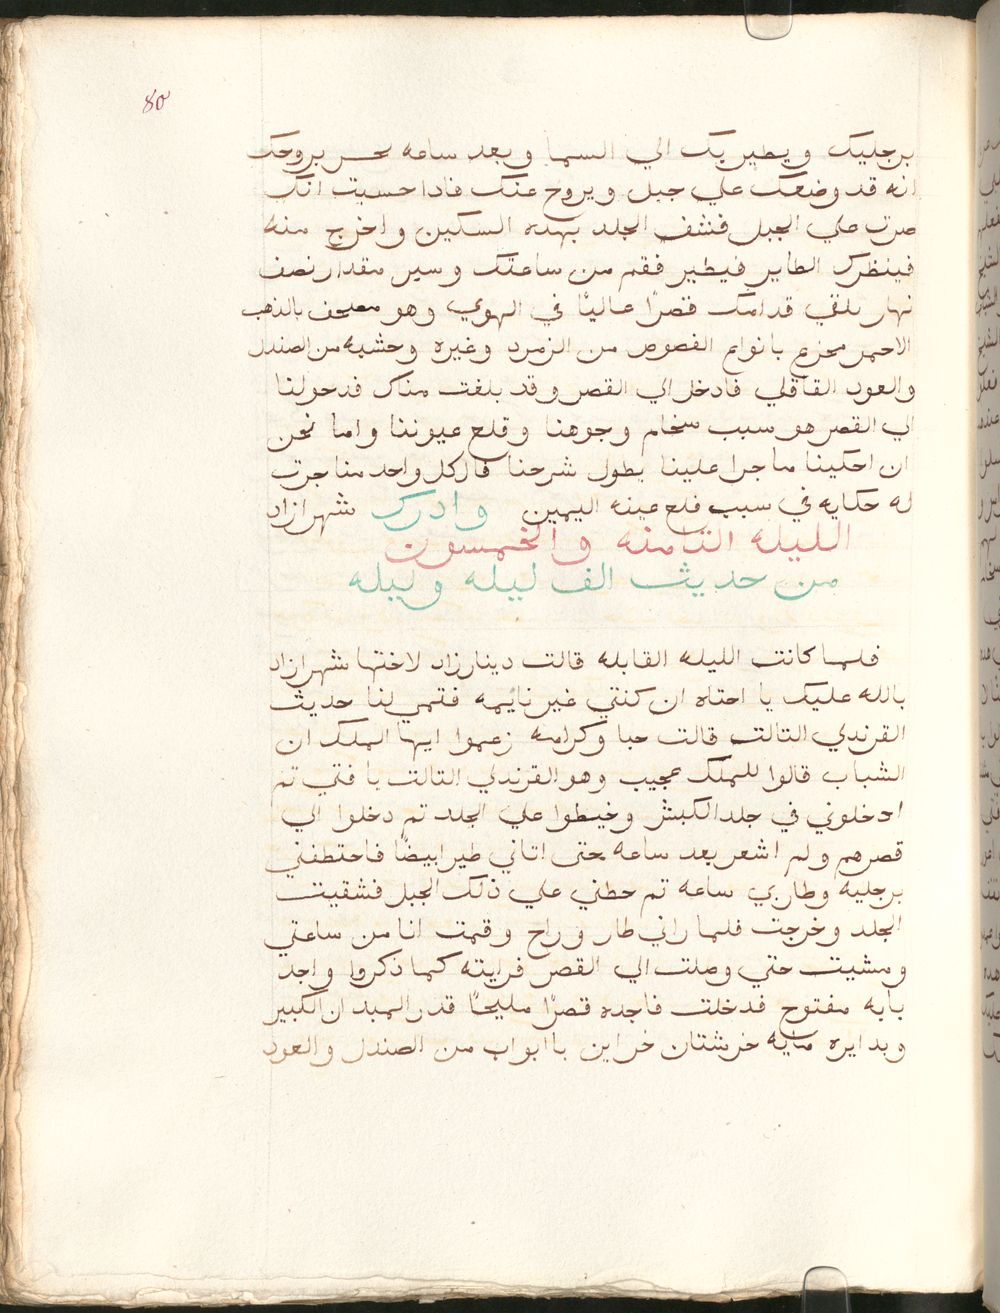 80
برجليك ويطير بك الي السما وبعد ساعه تحس بروحك
انه قد وضعك علي جبل ويروح عنك فادا حسيت انك
صرت علي الجبل فشف الجلد بهده السكين واخرج منه
فينظرك الطاير فيطير فقم من ساعتك وسير مقدار نصف
نهار تلقي قدامك قصرًا عاليًا في الهوي وهو مصحف بالذهب
الاحمر مجزع بانواع الفصوص من الزمرد وغيره وخشبه من الصندل
والعود القاقلي فادخل الي القصر وقد بلغت مناك فدخولنا
الي القصر هو سبب سخام وجوهنا وقلع عيوننا واما نحن
ان احكينا ما جرا علينا يطول شرحنا فان كل واحد منا جرت
له حكايه في سبب قلع عينه اليمين وادرك شهرازاد
الليله التامنه والخمسون
من حديث الف ليله وليله
فلما كانت الليله القابله قالت دينارزاد لاختها شهرازاد
بالله عليك يا اختاه ان كنتي غير نايمه فتممي لنا حديث
القرندلي التالت قالت حبا وكرامه زعموا ايها الملك ان
الشباب قالوا للملك عجيب وهو القرندلي التالت يا فتي تم
ادخلوني في جلد الكبش وخيطوا علي الجلد تم دخلوا الي
قصرهم ولم اشعر بعد ساعه حتى اتاني طير ابيضًا فاختطفني
برجليه وطار بي ساعه تم حطني علي ذلك الجبل فشقيت
الجلد وخرجت فلما راني طار وراح وقمت انا من ساعتي
ومشيت حتي وصلت الي القصر فرايته كما ذكروا واجد
بابه مفتوح فدخلت فاجده قصرًا مليحًا قدر الميدان الكبير
وبدايره مايه خرشتان خزاين باابواب من الصندل والعود